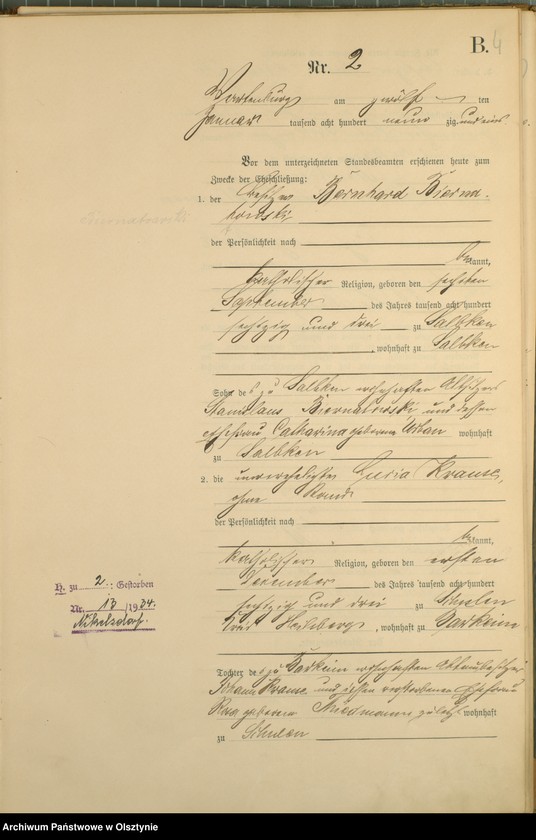 B. 4
Nr. 2
Wartenburg am zwölf ten
Januar tausend acht hundert neun zig und eins
Vor dem unterzeichneten Standesbeamten erschienen heute zum
Zwecke der Eheschließung:
1. der Besitzer Bernhard Bierna-
towski
der Persönlichkeit nach
be kannt,
katholischer Religion, geboren den sechsten
September des Jahres tausend acht hundert
sechzig und drei zu Salbken
, wohnhaft zu Salbken
Sohn des zu Salbken wohnhaften Altsitzers
Stanislaus Biernatowski und dessen
Ehefrau Catharina geborene Urban wohnhaft
zu Salbken
2. die unverehelichte Lucia Krause,
ohne Stand
der Persönlichkeit nach
be kannt,
katholischer Religion, geboren den ersten
Dezember des Jahres tausend acht hundert
sechzig und drei zu Schulen
Kreis Heilsberg, wohnhaft zu Darkeim
H. zu 2: Gestorben
Nr. 13/1934.
Nikelsdorf.
Tochter des zu Darkeim wohnhaften
Johann Krause und dessen verstorbenen Ehefrau
Rosa geborene zuletzt wohnhaft
zu Schulen
Archiwum Państwowe w Olsztynie